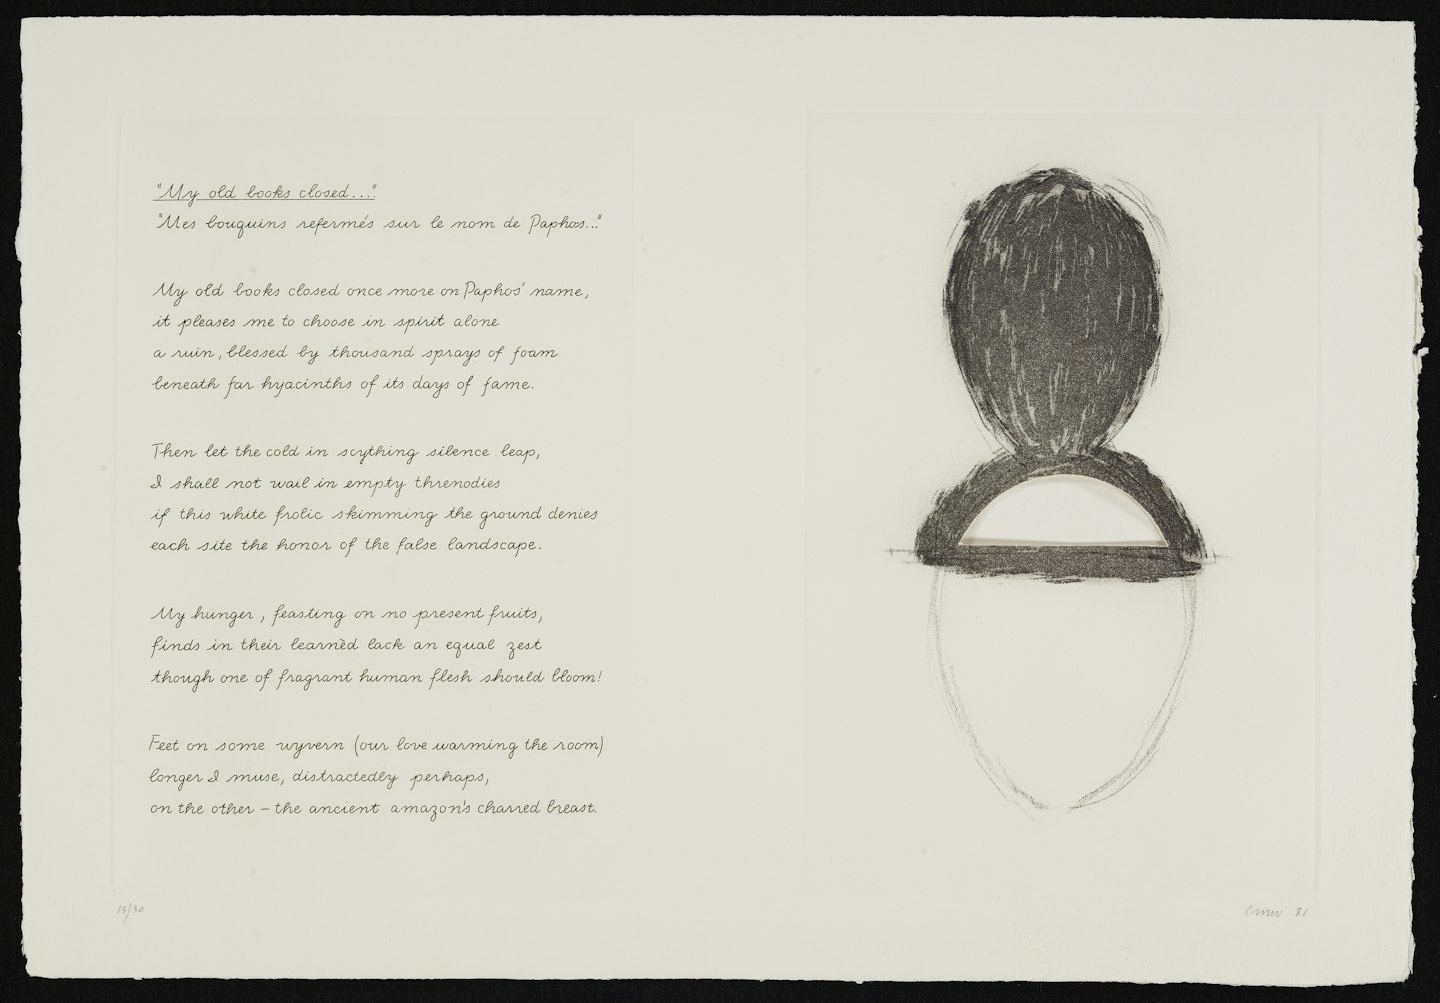 "My old books closed..."
"Mes bouquins refermés sur le nom de Paphos..."
My old books closed once more on Paphos' name,
it pleases me to choose in spirit alone
a ruin, blessed by thousand sprays of foam
beneath far hyacinths of its days of fame.
Then let the cold in scything silence leap,
I shall not wail in empty threnodies
if this white frolic skimming the ground denies
each site the honor of the false landscape.
My hunger, feasting on no present fruits,
finds in their learnèd lack an equal zest
though one of fragrant human flesh should bloom!
Feet on some wyvern (our love warming the room)
longer I muse, distractedly perhaps,
on the other – the ancient amazon's charred breast.
13/30
81